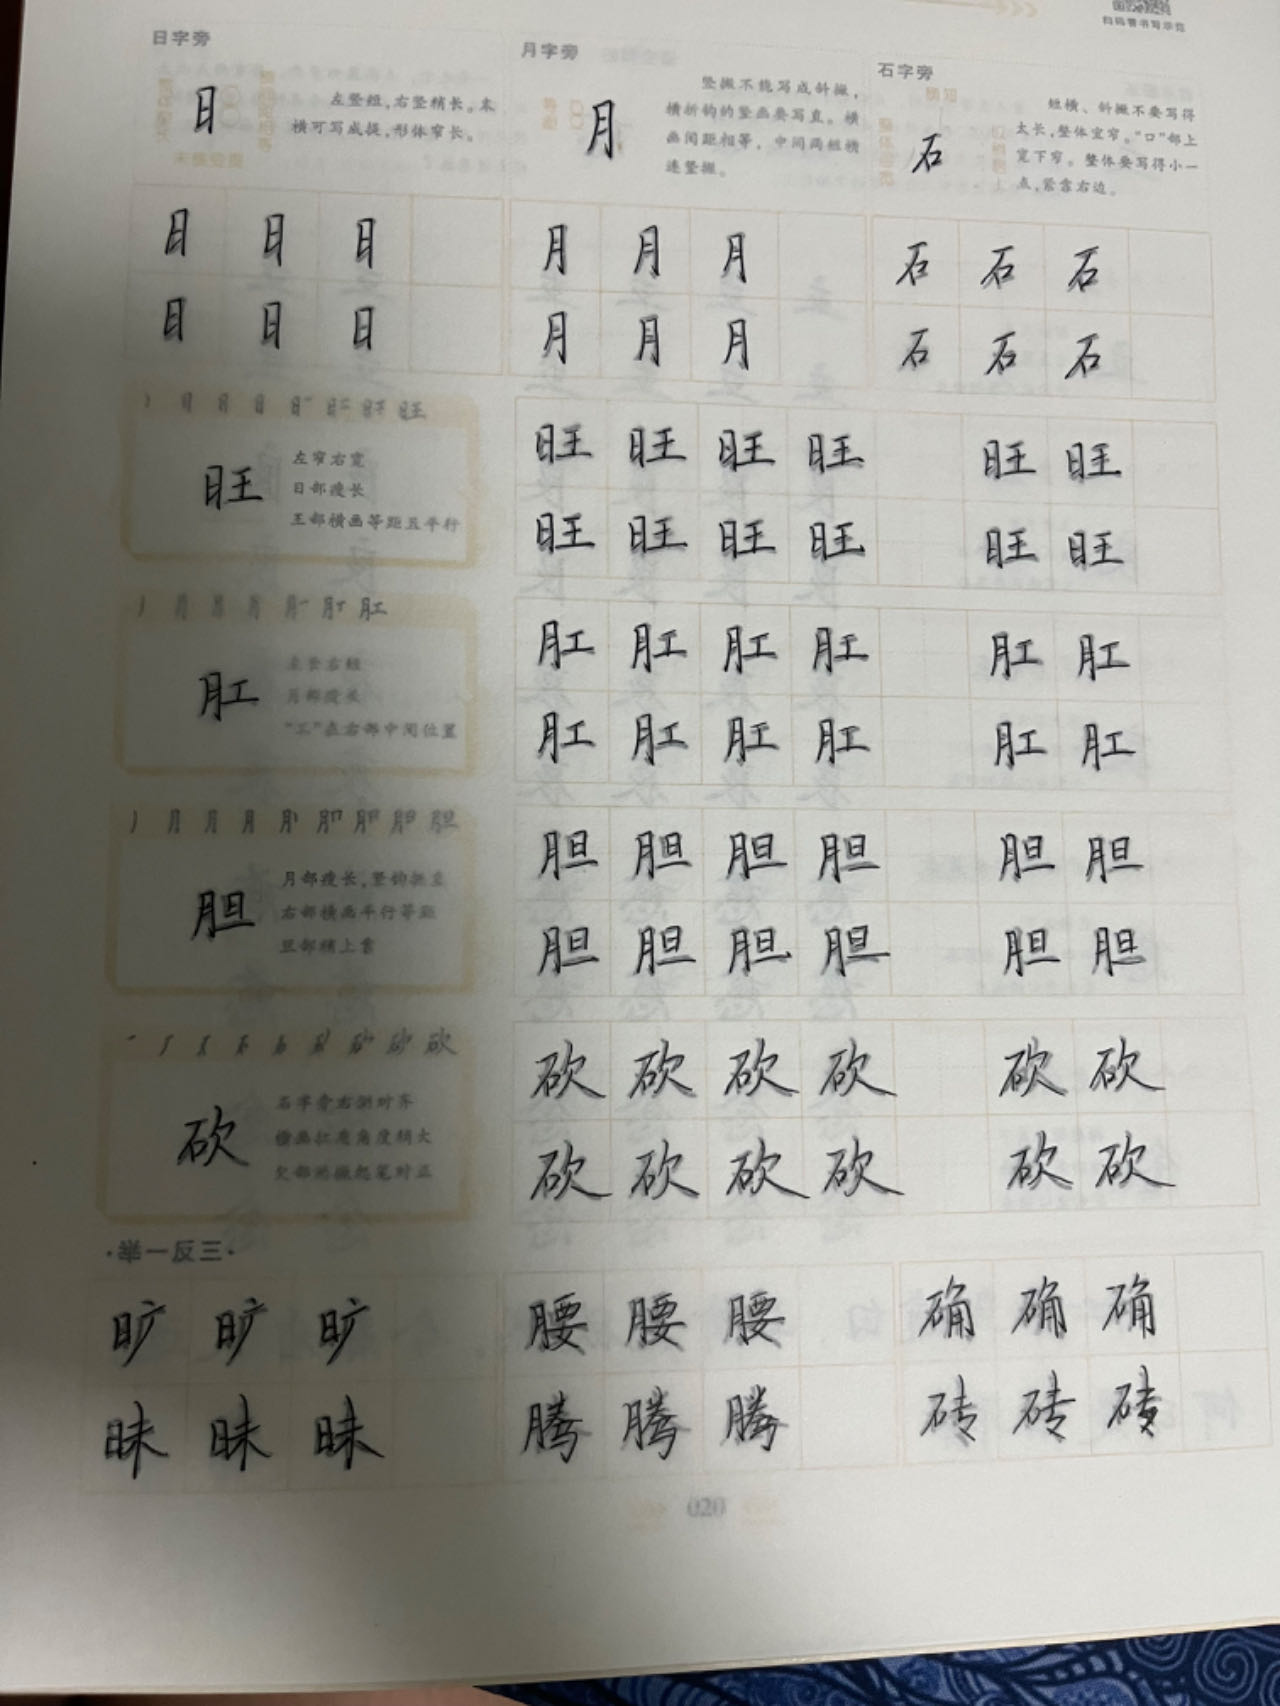 扫码看书写示范
日字旁
日
左竖短,右竖稍长。末
横可写成提,形体窄长。
月字旁
月
竖撇不能写成斜撇,
横折钩的竖画要写直。横
画间距相等,中间两短横
连竖撇。
石字旁
石
短横、斜撇不要写得
太长,整体宜窄。“口”部上
宽下窄。整体要写得小一
点,紧靠右边。
日 日 日 月 月 月 石 石 石
日 日 日 月 月 月 石 石 石
旺
左窄右宽
日部瘦长
王部横画等距且平行
旺 旺 旺 旺 旺 旺
旺 旺 旺 旺 旺 旺
肛
左长右短
月部瘦长
“工”在右部中间位置
肛 肛 肛 肛 肛 肛
肛 肛 肛 肛 肛 肛
胆
月部瘦长,竖钩挺直
右部横画平行等距
旦部稍上靠
胆 胆 胆 胆 胆 胆
胆 胆 胆 胆 胆 胆
砍
石字旁右侧对齐
横画扛肩角度稍大
欠部两撇起笔对正
砍 砍 砍 砍 砍 砍
砍 砍 砍 砍 砍 砍
·举一反三·
旷 旷 旷 腰 腰 腰 确 确 确
昧 昧 昧 腾 腾 腾 砖 砖 砖
020